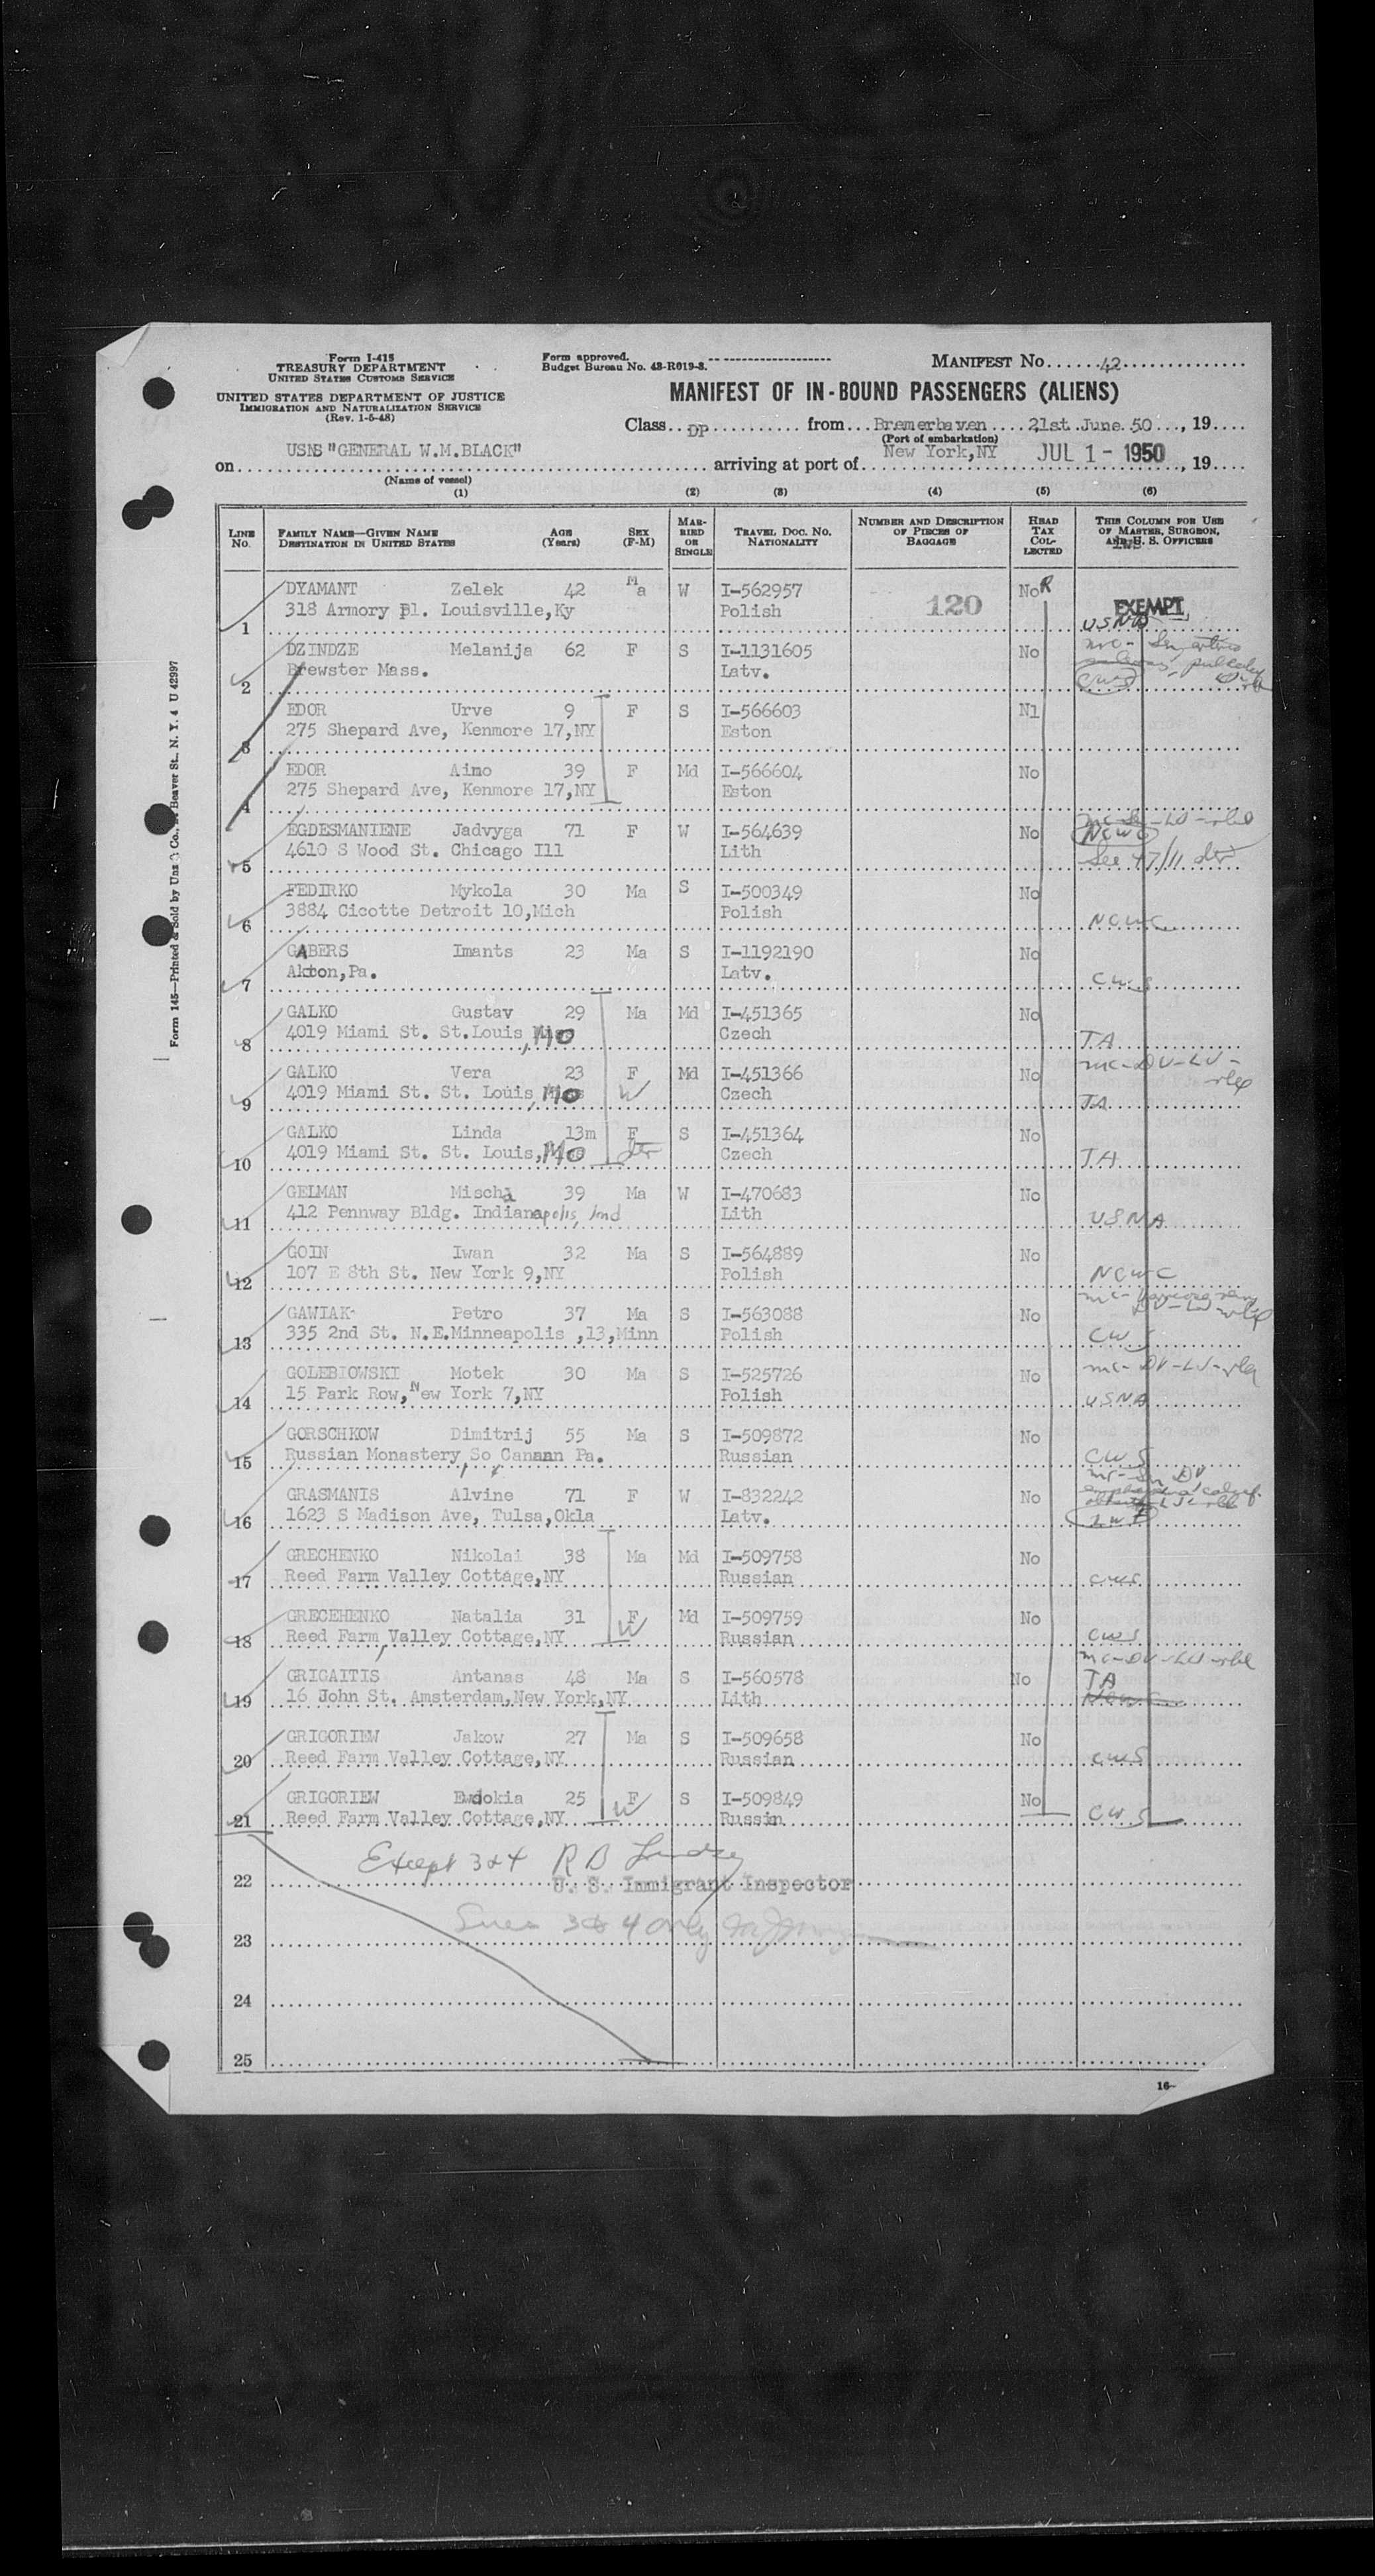 Form I-415
TREASURY DEPARTMENT
UNITED STATES CUSTOMS SERVICE
UNITED STATES DEPARTMENT OF JUSTICE
IMMIGRATION AND NATURALIZATION SERVICE
(Rev. 1-5-48)
Form approved.
Budget Bureau No. 43-R019-3.
MANIFEST No. 42
MANIFEST OF IN-BOUND PASSENGERS (ALIENS)
Class DP from Bremerhaven 21st June 50, 19
(Port of embarkation)
on USNS "GENERAL W.M.BLACK" arriving at port of New York, NY JUL 1 - 1950, 19
(Name of vessel)
(1) (2) (3) (4) (5) (6)
LINE No. FAMILY NAME—GIVEN NAME DESTINATION IN UNITED STATES AGE (Years) SEX (F-M) MARRIED OR SINGLE TRAVEL DOC. No. NATIONALITY NUMBER AND DESCRIPTION OF PIECES OF BAGGAGE HEAD TAX COLLECTED THIS COLUMN FOR USE OF MASTER, SURGEON, AND U. S. OFFICERS
DYAMANT Zelek 42 Ma W I-562957 No R
318 Armory Pl. Louisville, Ky Polish 120 EXEMPT
1 USNA
DZINDZE Melanija 62 F S I-1131605 No mc-
Brewster Mass. Latv.
2 CWS
EDOR Urve 9 F S I-566603 N1
275 Shepard Ave, Kenmore 17, NY Eston
3
EDOR Aino 39 F Md I-566604 No
275 Shepard Ave, Kenmore 17, NY Eston
4
EGDESMANIENE Jadvyga 71 F W I-564639 No NCWC
4610 S Wood St. Chicago Ill Lith See 47/11
5
FEDIRKO Mykola 30 Ma S I-500349 No
3884 Cicotte Detroit 10, Mich Polish
6 NCWC
GABERS Imants 23 Ma S I-1192190 No
Akton, Pa. Latv.
7 CWS
GALKO Gustav 29 Ma Md I-451365 No
4019 Miami St. St.Louis, Mo Czech
8 TA
GALKO Vera 23 F Md I-451366 No mc-DV-LV-
4019 Miami St. St. Louis, Mo W Czech
9 TA
GALKO Linda 13m F S I-451364 No
4019 Miami St. St. Louis, Mo dtr Czech
10 TA
GELMAN Mischa 39 Ma W I-470683 No
412 Pennway Bldg. Indianapolis, Ind Lith
11 USNA
GOIN Iwan 32 Ma S I-564889 No
107 E 8th St. New York 9, NY Polish
12 NCWC
GAWIAK Petro 37 Ma S I-563088 No
335 2nd St. N.E.Minneapolis ,13, Minn Polish
13 CWS
GOLEBIOWSKI Motek 30 Ma S I-525726 No mc-DV-LV-
15 Park Row, New York 7, NY Polish
14 USNA
GORSCHKOW Dimitrij 55 Ma S I-509872 No
Russian Monastery, So Canaan Pa. Russian
15 CWS
GRASMANIS Alvine 71 F W I-832242 No
1623 S Madison Ave, Tulsa, Okla Latv.
16 LWF
GRECHENKO Nikolai 38 Ma Md I-509758 No
Reed Farm, Valley Cottage, NY Russian
17 CWS
GRECEHENKO Natalia 31 F Md I-509759 No
Reed Farm, Valley Cottage, NY W Russian
18 CWS
GRIGAITIS Antanas 48 Ma S I-560578 No mc-DV-LV-
16 John St. Amsterdam, New York, NY Lith TA
19
GRIGORIEW Jakow 27 Ma S I-509658 No
Reed Farm Valley Cottage, NY Russian
20 CWS
GRIGORIEW Ewdokia 25 F S I-509849 No
Reed Farm Valley Cottage, NY W Russin
21 CWS
Except 3 & 4 R B Lindsey
22 U. S. Immigrant Inspector
Lines 3 & 4 only
23
24
25
16—
Form 145—Printed & Sold by Unz & Co., Beaver St., N. Y. 4 U 42997